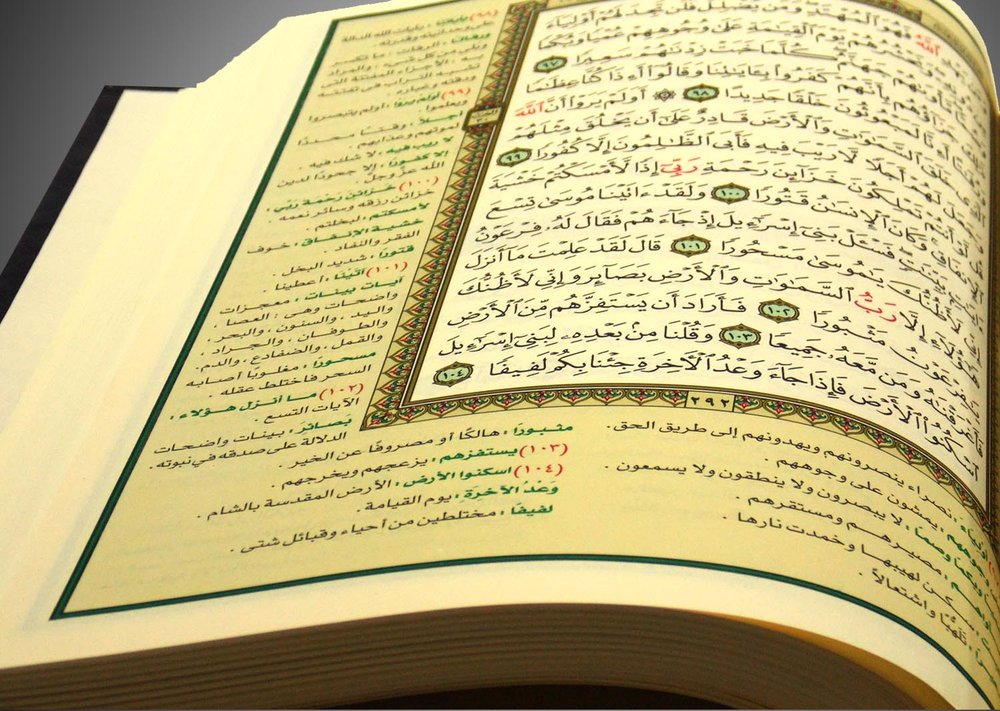 اللَّهُ فَهُوَ الْمُهْتَدِ وَمَن يُضْلِلْ فَلَن تَجِدَ لَهُمْ أَوْلِيَاءَ
وَنَحْشُرُهُمْ يَوْمَ الْقِيَٰمَةِ عَلَىٰ وُجُوهِهِمْ عُمْيًا وَبُكْمًا
مَّأْوَىٰهُمْ جَهَنَّمُ كُلَّمَا خَبَتْ زِدْنَٰهُمْ سَعِيرًا ٩٧
جَزَاؤُهُم بِأَنَّهُمْ كَفَرُوا بِـَٔايَٰتِنَا وَقَالُوا أَءِذَا كُنَّا عِظَٰمًا
وَرُفَٰتًا أَءِنَّا لَمَبْعُوثُونَ خَلْقًا جَدِيدًا ٩٨ ۞ أَوَلَمْ يَرَوْا أَنَّ اللَّهَ
خَلَقَ السَّمَٰوَٰتِ وَالْأَرْضَ قَادِرٌ عَلَىٰ أَن يَخْلُقَ مِثْلَهُمْ
وَجَعَلَ لَهُمْ أَجَلًا لَّا رَيْبَ فِيهِ فَأَبَى الظَّٰلِمُونَ إِلَّا كُفُورًا ٩٩
لَّوْ أَنتُمْ تَمْلِكُونَ خَزَائِنَ رَحْمَةِ رَبِّي إِذًا لَّأَمْسَكْتُمْ خَشْيَةَ
الْإِنفَاقِ وَكَانَ الْإِنسَٰنُ قَتُورًا ١٠٠ وَلَقَدْ ءَاتَيْنَا مُوسَىٰ تِسْعَ
بَيِّنَٰتٍ فَسْـَٔلْ بَنِي إِسْرَٰٓءِيلَ إِذْ جَاءَهُمْ فَقَالَ لَهُ فِرْعَوْنُ
إِنِّي لَأَظُنُّكَ يَٰمُوسَىٰ مَسْحُورًا ١٠١ قَالَ لَقَدْ عَلِمْتَ مَا أَنزَلَ
هَٰٓؤُلَاءِ إِلَّا رَبُّ السَّمَٰوَٰتِ وَالْأَرْضِ بَصَائِرَ وَإِنِّي لَأَظُنُّكَ
يَٰفِرْعَوْنُ مَثْبُورًا ١٠٢ فَأَرَادَ أَن يَسْتَفِزَّهُم مِّنَ الْأَرْضِ
فَأَغْرَقْنَٰهُ وَمَن مَّعَهُ جَمِيعًا ١٠٣ وَقُلْنَا مِن بَعْدِهِ لِبَنِي إِسْرَٰٓءِيلَ
اسْكُنُوا الْأَرْضَ فَإِذَا جَاءَ وَعْدُ الْآخِرَةِ جِئْنَا بِكُمْ لَفِيفًا ١٠٤
٢٩٢
(٩٨) بآياتنا : بآيات الله الدالة
على وحدانيته وقدرته .
(٩٩) أولم يروا : أولم يتبصروا
ويعلموا .
أجلاً : وقتًا محددًا
لموتهم وعذابهم .
لا ريب فيه : لا شك فيه .
إلا كفورًا : إلا جحودًا لدين
الله عز وجل .
(١٠٠) خزائن رحمة ربي :
خزائن رزقه وسائر نعمه .
لأمسكتم : لبخلتم .
خشية الإنفاق : خوف
الفقر والنفاد .
قتورًا : شديد البخل .
(١٠١) آتينا : أعطينا .
آيات بينات : معجزات
واضحات وهي : العصا ،
واليد ، والسنون ، والبحر ،
والطوفان ، والجراد ،
والقمل ، والضفادع ، والدم .
مسحورًا : مغلوبًا أصابه
السحر فاختلط عقله .
(١٠٢) ما أنزل هؤلاء :
الآيات التسع .
بصائر : بينات واضحات
الدلالة على صدقه في نبوته .
مثبورًا : هالكًا أو مصروفًا عن الخير .
(١٠٣) يستفزهم : يزعجهم ويخرجهم .
(١٠٤) اسكنوا الأرض : الأرض المقدسة بالشام .
وعد الآخرة : يوم القيامة .
لفيفًا : مختلطين من أحياء وقبائل شتى .
أولياء : نصراء ينصرونهم ويهدونهم إلى طريق الحق .
يمشون على وجوههم .
لا يبصرون ولا ينطقون ولا يسمعون .
مصيرهم ومستقرهم .
سكن لهيبها وخمدت نارها .
تلهبًا واشتعالاً .